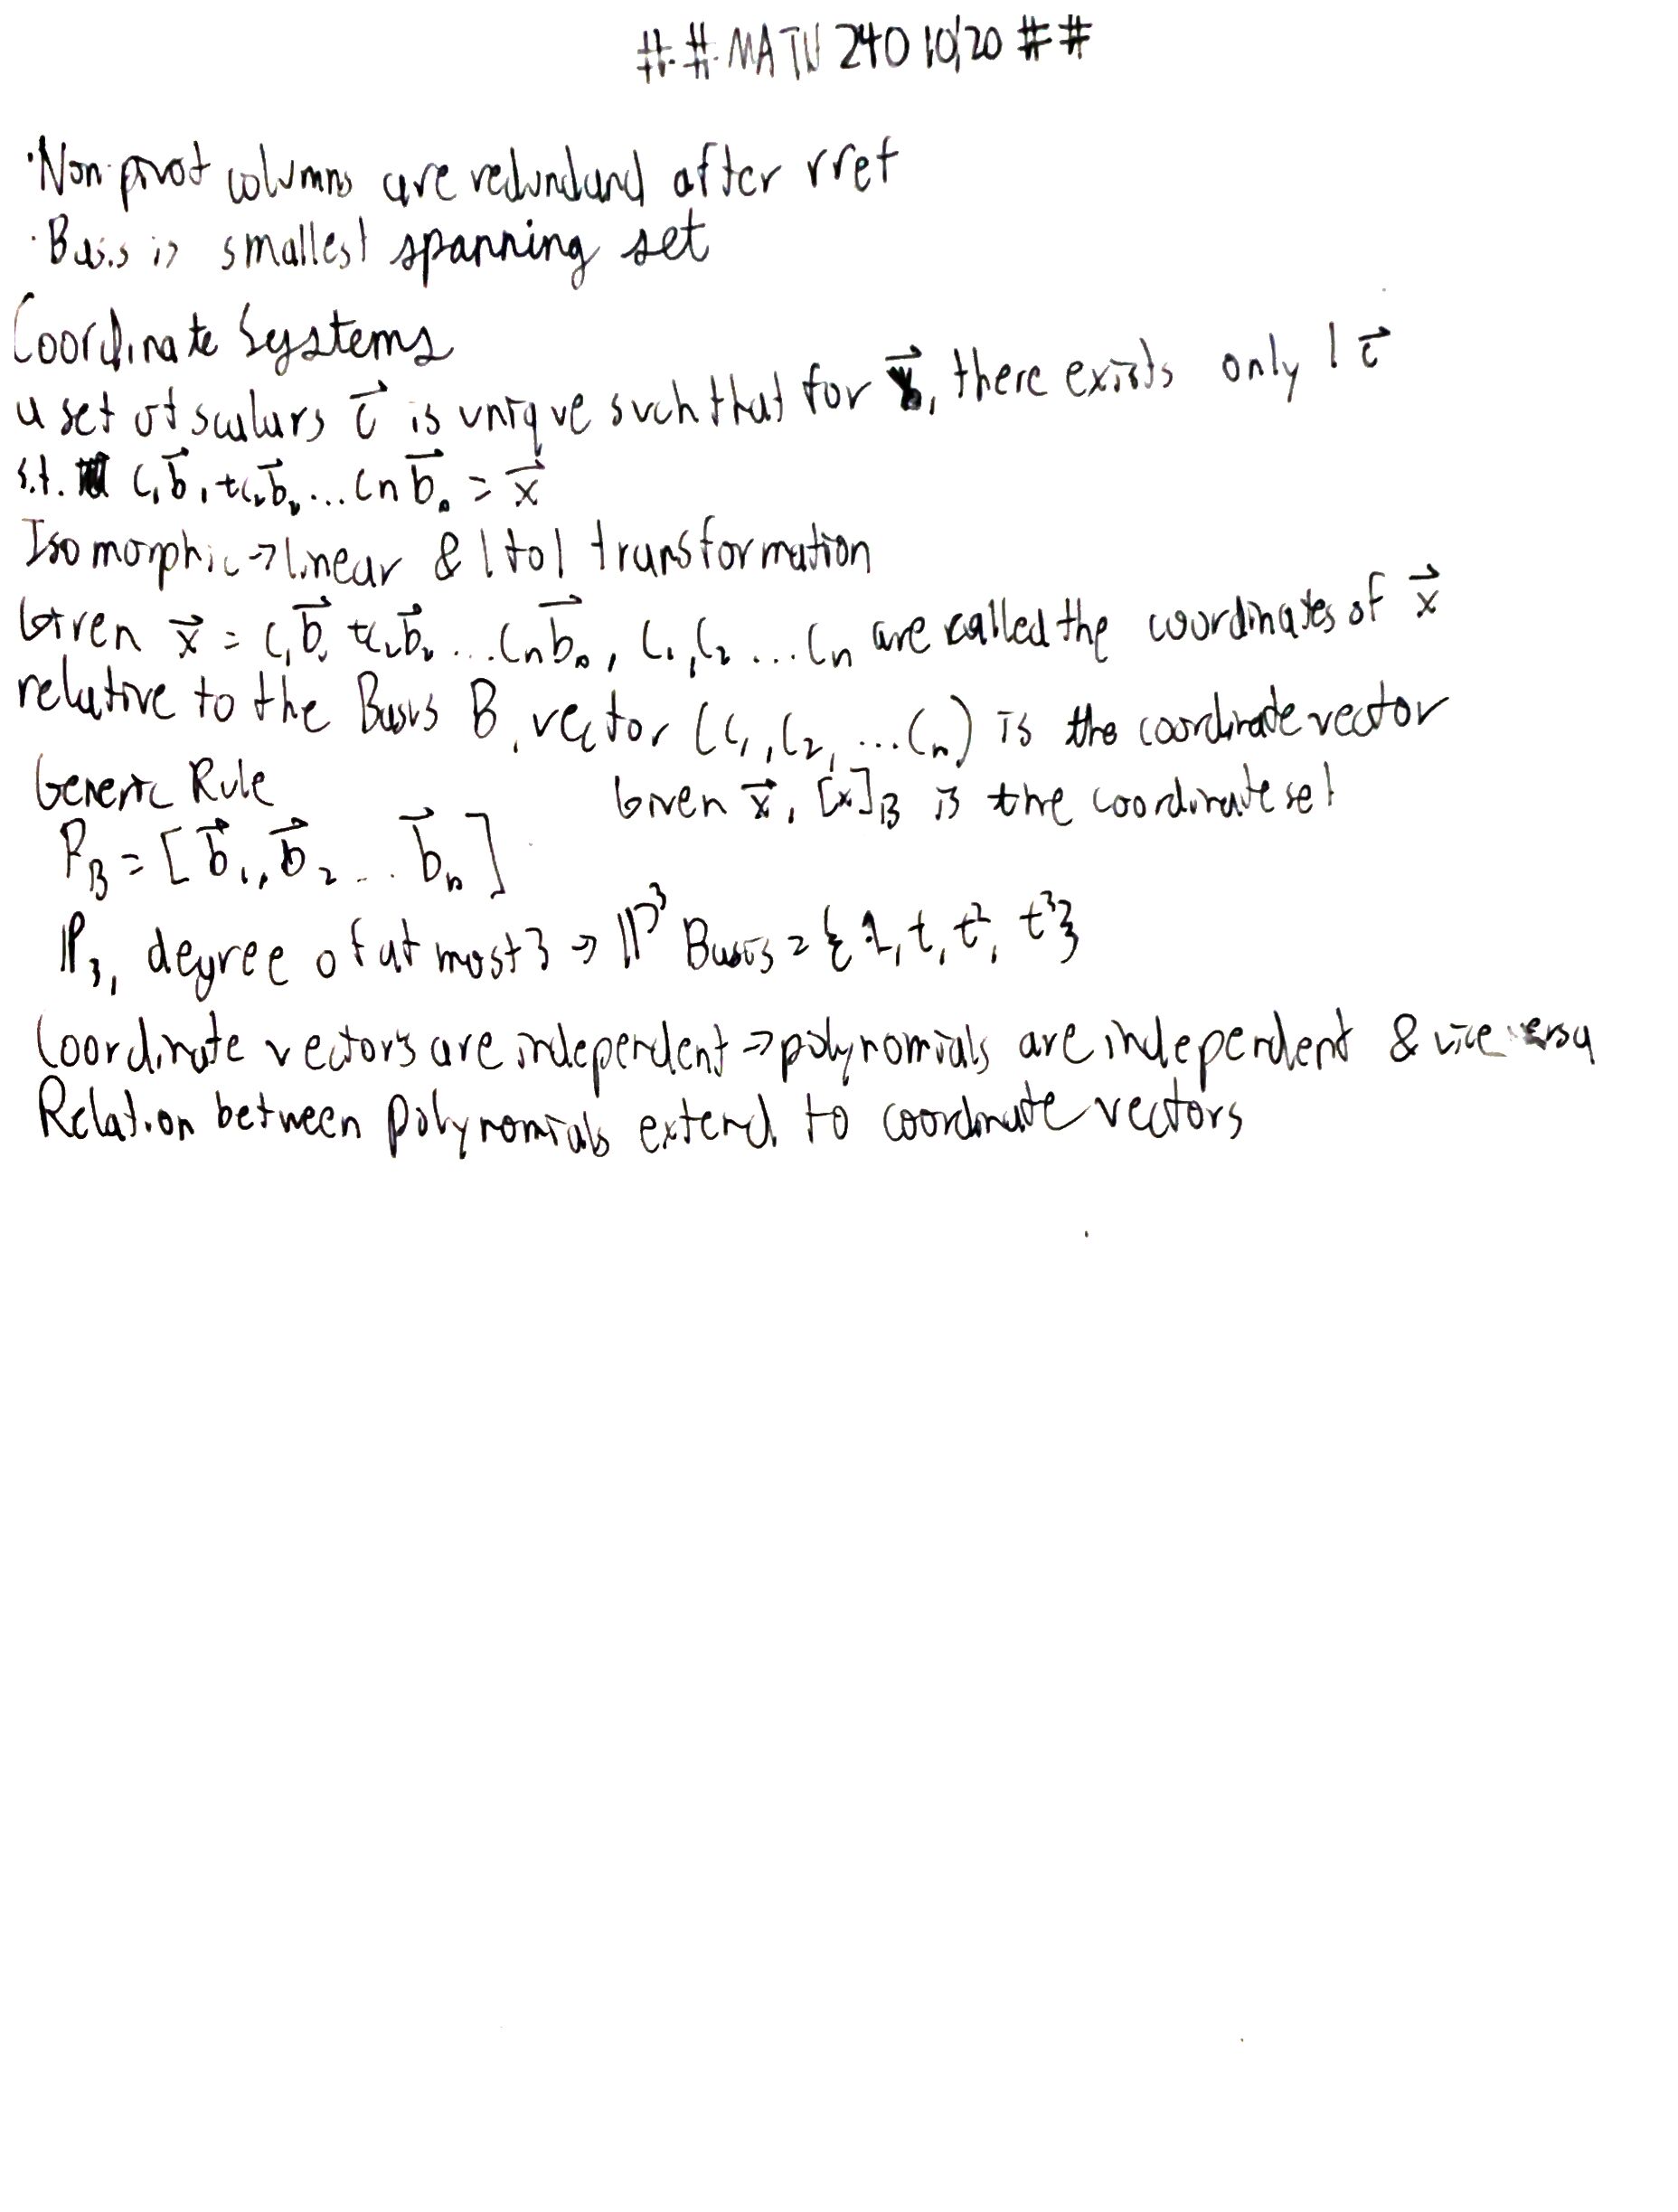 ## MATH 240 10/20 ##
· Non-pivot columns are redundand after rref
· Basis is smallest spanning set
Coordinate Systems
a set of scalars c⃗ is unique such that for x⃗, there exists only 1 c⃗
s.t. c₁b⃗₁ + c₂b⃗₂ ... cₙb⃗ₙ = x⃗
Isomorphic → linear & 1 to 1 transformation
Given x⃗ = c₁b⃗₁ + c₂b⃗₂ ... cₙb⃗ₙ, c₁, c₂ ... cₙ are called the coordinates of x⃗
relative to the Basis B, vector (c₁, c₂, ... cₙ) is the coordinate vector
Generic Rule Given x⃗, [x]_B is the coordinate set
P_B = [b⃗₁, b⃗₂ ... b⃗ₙ]
ℙ₃, degree of at most 3 → ℙ³ Basis = {1, t, t², t³}
Coordinate vectors are independent → polynomials are independent & vice versa
Relation between polynomials extend to coordinate vectors